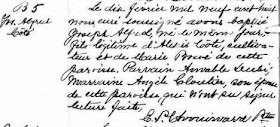 B 5
Jos. Alfred
Côté
Le dix février mil neuf cent huit
nous curé soussigné avons baptisé
Joseph Alfred, né le même jour
fils légitime d'Alexis Côté, cultiva-
teur et de Marie Proué de cette
paroisse. Parrain
Marraine Angèle Cloutier, son épouse
de cette paroisse qui n'ont pu signer
lecture faite.
Ptre